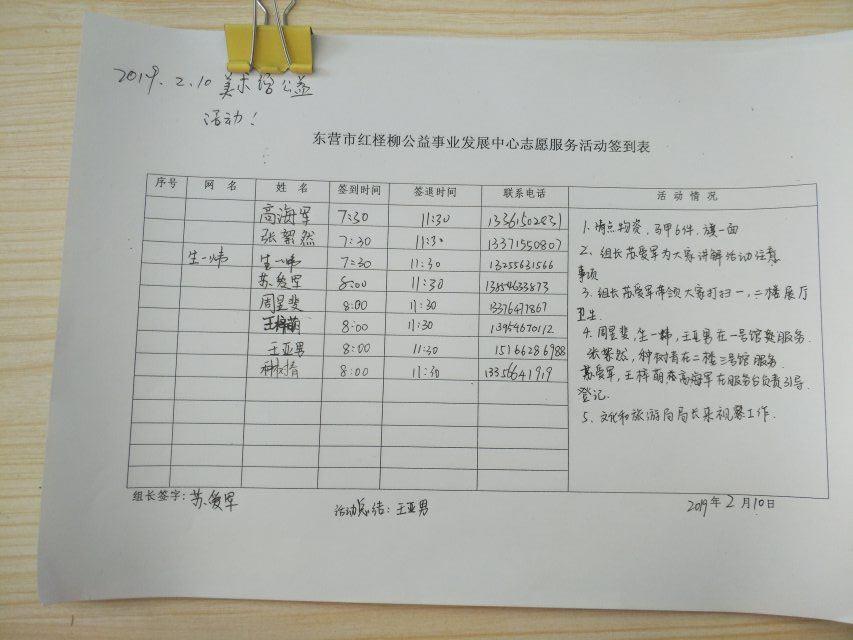 2019.2.10 美术馆公益
活动!
东营市红柽柳公益事业发展中心志愿服务活动签到表
序号 网名 姓名 签到时间 签退时间 联系电话 活动情况
高海军 7:30 11:30
张絮然 7:30 11:30 13371550807
生一炜 生一炜 7:30 11:30 13255631566
苏爱军 8:00 11:30 13854633873
周星斐 8:00 11:30 13376477867
王梓萌 8:00 11:30 13954670112
王亚男 8:00 11:30 15166286988
种树青 8:00 11:30 13356641919
1. 清点物资,马甲6件,旗一面
2、组长苏爱军为大家讲解活动注意
事项
3、组长苏爱军带领大家打扫一,二楼展厅
卫生.
4. 周星斐,生一炜,王亚男在一号馆类服务.
张絮然,种树青在二楼三号馆服务.
苏爱军,王梓萌高海军在服务台负责引导,
登记.
5、文化和旅游局局长来视察工作.
组长签字:苏爱军
活动总结:王亚男
2019年2月10日